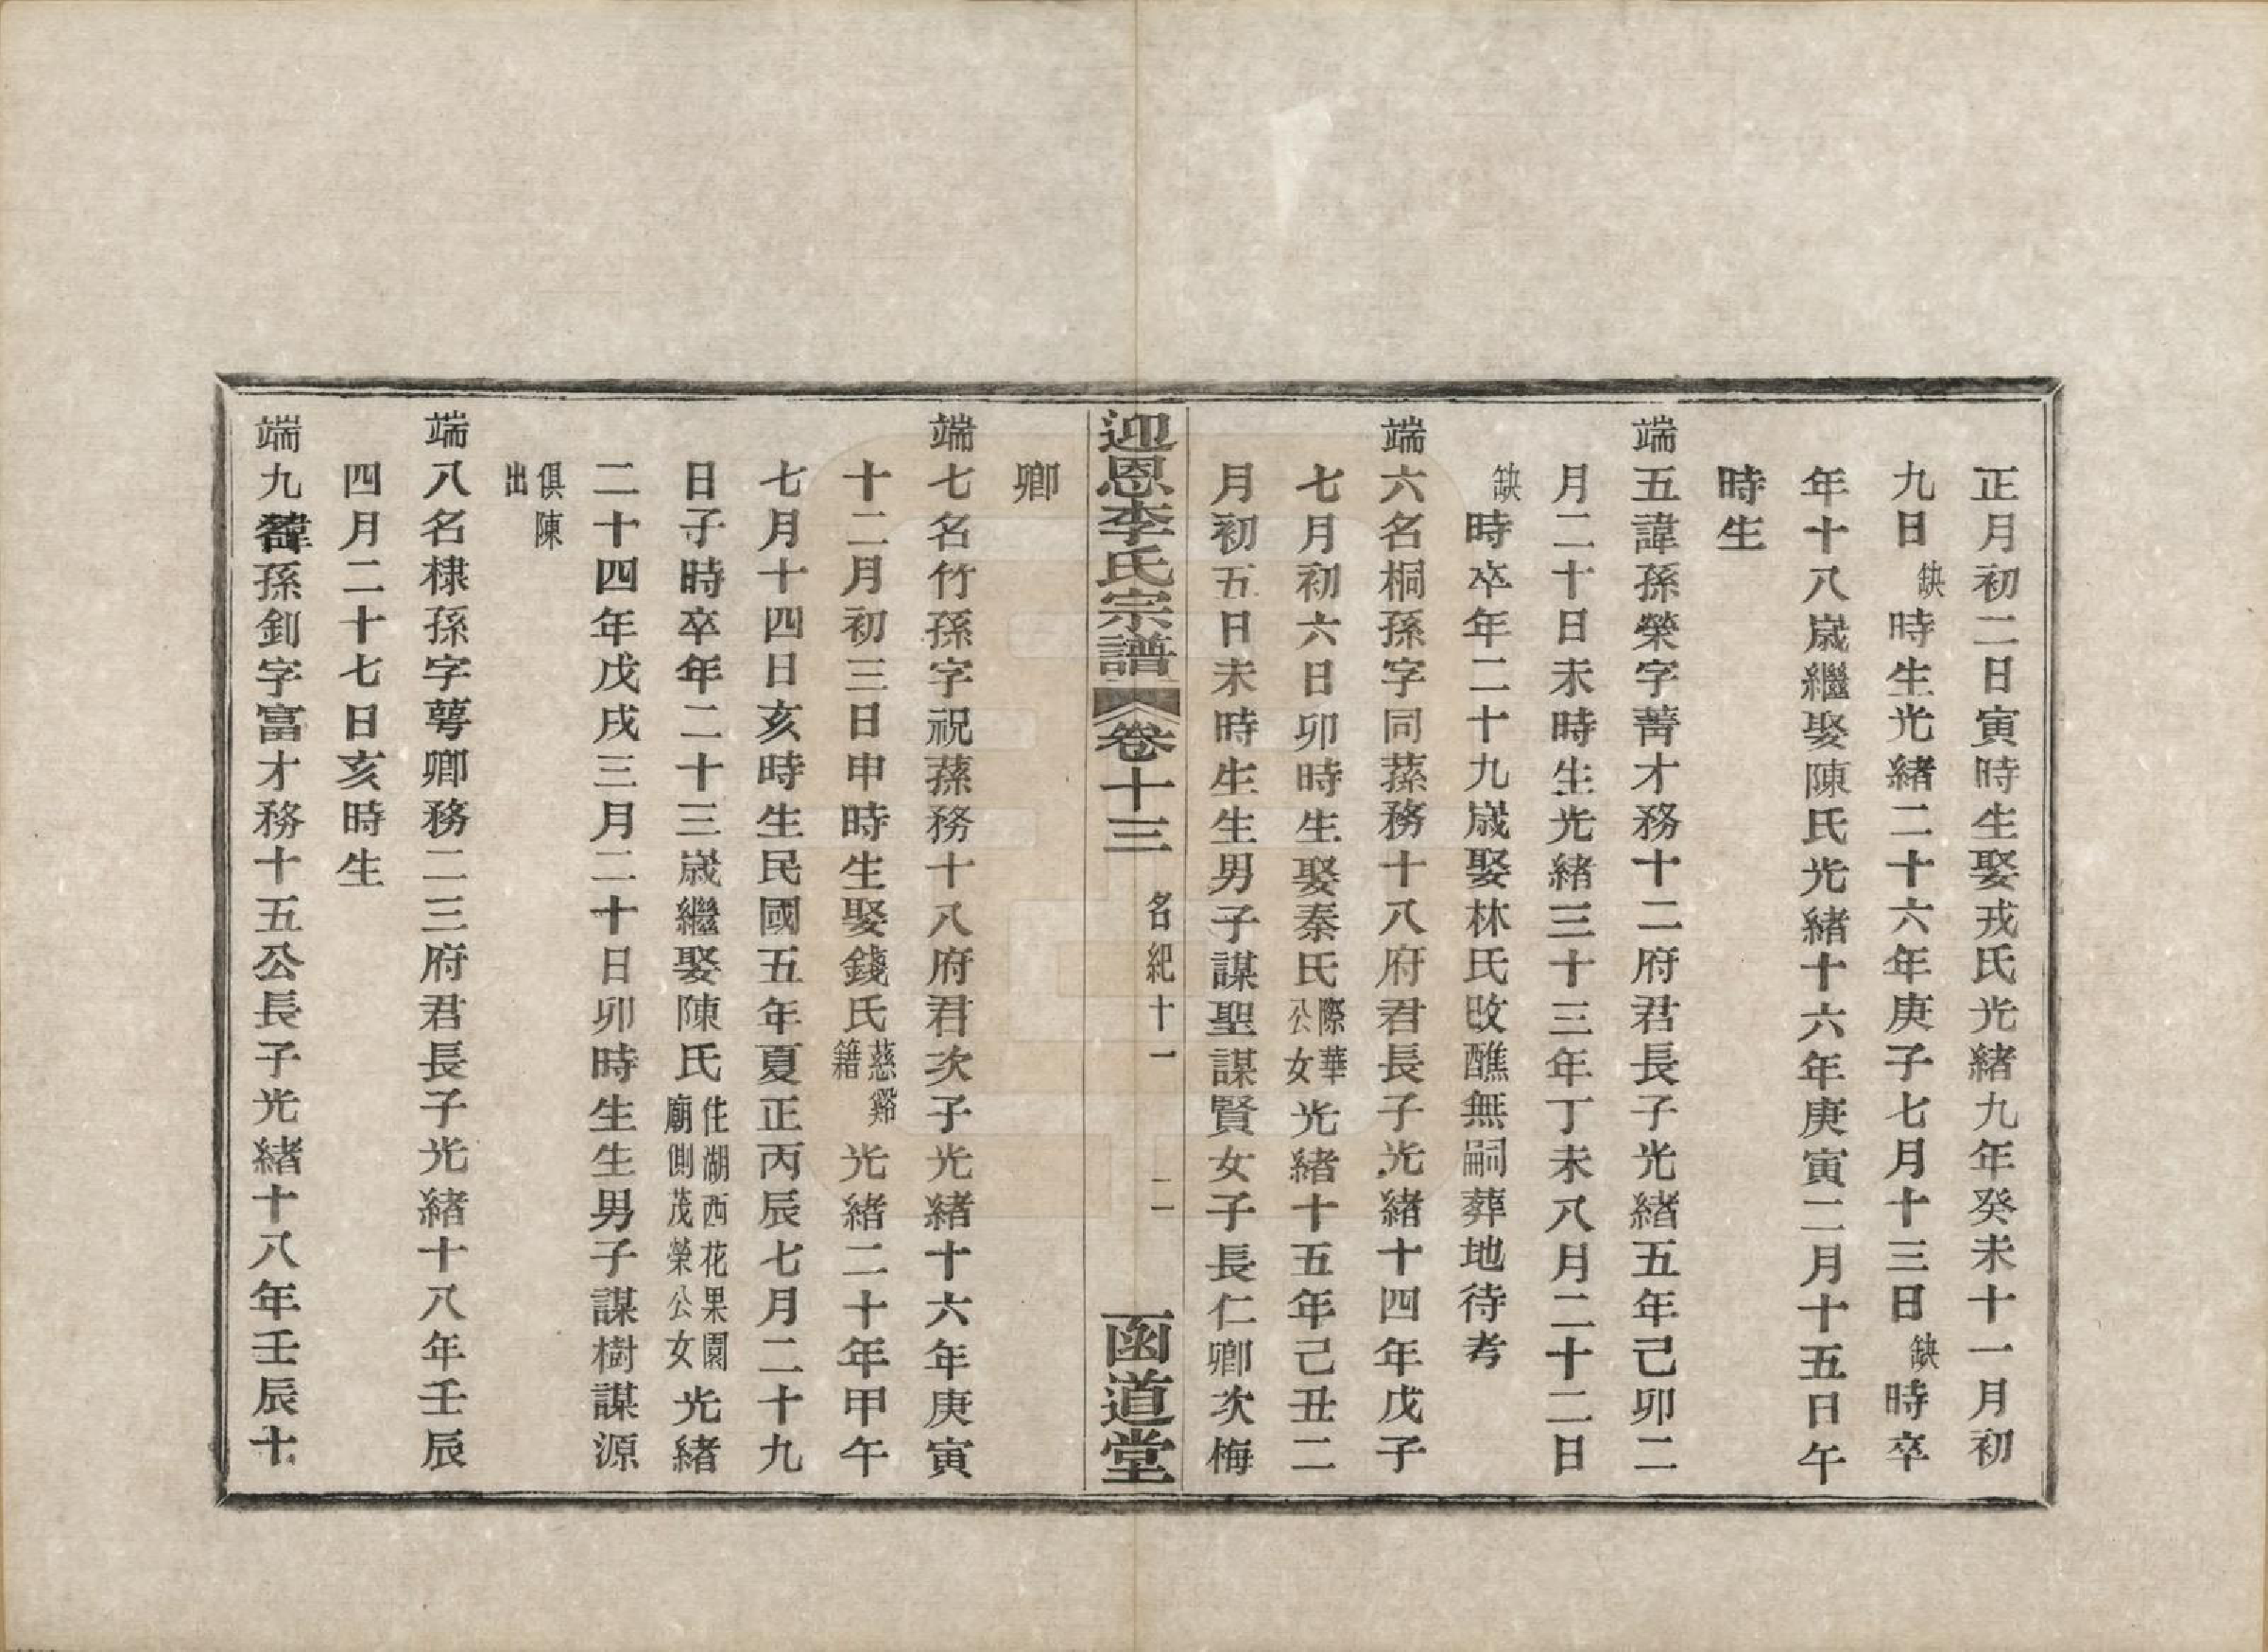 正月初二日寅時生娶戎氏光緒九年癸未十一月初
九日缺時生光緒二十六年庚子七月十三日缺時卒
年十八歲繼娶陳氏光緒十六年庚寅二月十五日午
時生
端五諱孫榮字菁才務十二府君長子光緒五年己卯二
月二十日未時生光緒三十三年丁未八月二十二日
缺時卒年二十九歲娶林氏改醮無嗣葬地待考
端六名桐孫字同蓀務十八府君長子光緒十四年戊子
七月初六日卯時生娶秦氏際華公女光緒十五年己丑二
月初五日未時生生男子謀聖謀賢女子長仁卿次梅
迎恩李氏宗譜 卷十三 名紀十一 二 函道堂
卿
端七名竹孫字祝蓀務十八府君次子光緒十六年庚寅
十二月初三日申時生娶錢氏慈谿籍光緒二十年甲午
七月十四日亥時生民國五年夏正丙辰七月二十九
日子時卒年二十三歲繼娶陳氏住湖西花果園廟側茂榮公女光緒
二十四年戊戌三月二十日卯時生生男子謀樹謀源
俱陳出
端八名棣孫字萼卿務二三府君長子光緒十八年壬辰
四月二十七日亥時生
端九孫釗字富才務十五公長子光緒十八年壬辰十